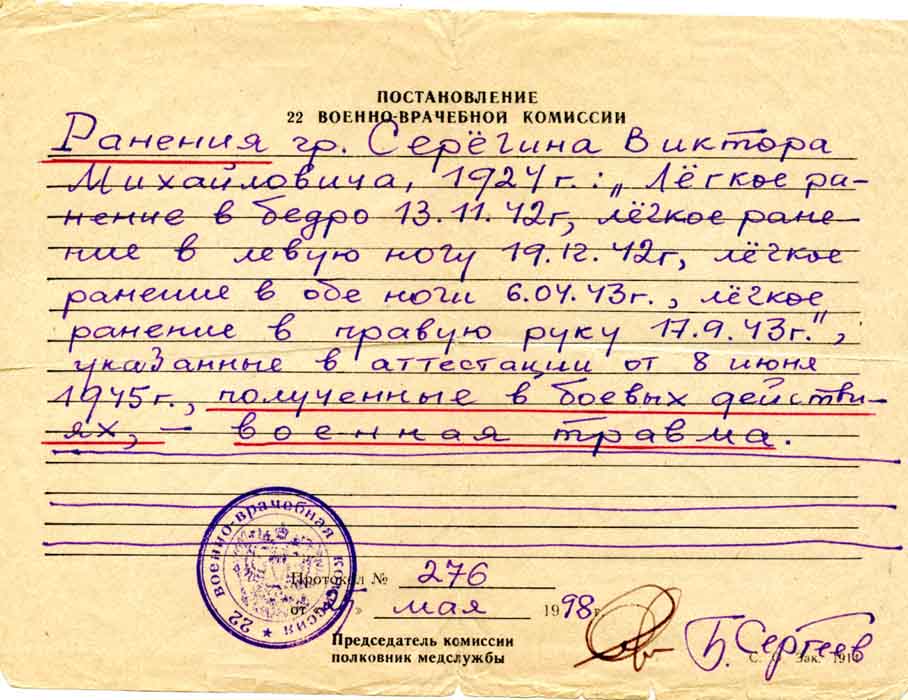 ПОСТАНОВЛЕНИЕ
22 ВОЕННО-ВРАЧЕБНОЙ КОМИССИИ
Ранения гр. Серёгина Виктора
Михайловича, 1924 г.: „Лёгкое ра-
нение в бедро 13.11.42г, лёгкое ране-
ние в левую ногу 19.12.42г, лёгкое
ранение в обе ноги 6.04.43г., лёгкое
ранение в правую руку 17.9.43г.",
указанные в аттестации от 8 июня
1945г., полученные в боевых действи-
ях, – военная травма.
22 военно-врачебная комиссия
Протокол № 276
от » мая 1998г
Председатель комиссии
полковник медслужбы
Б. Сергеев
Зак.